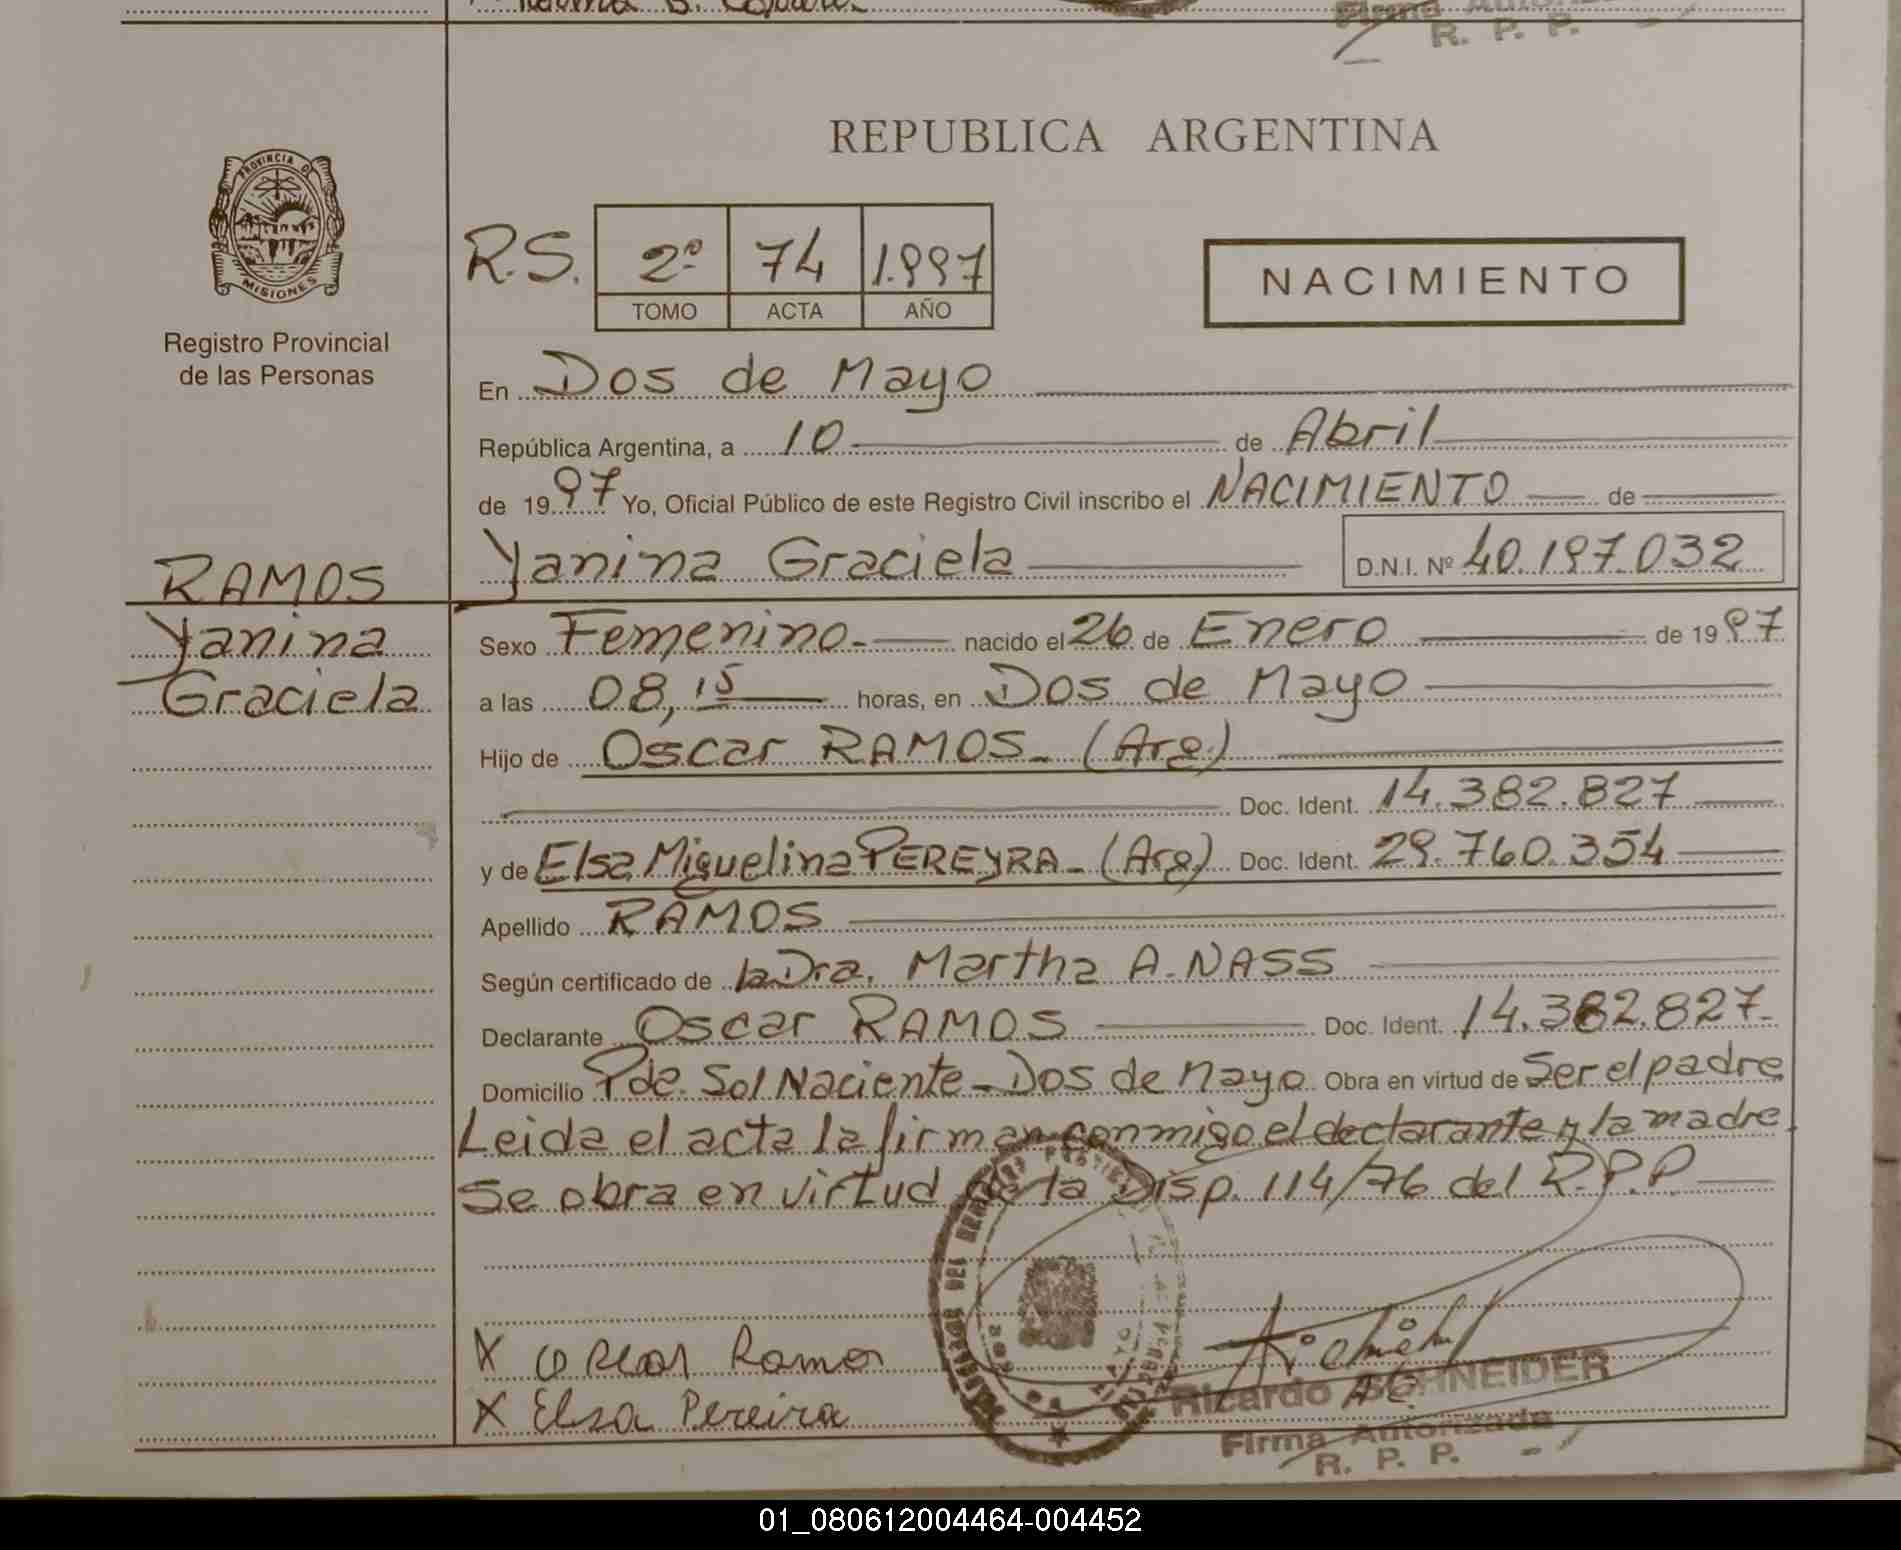 Firma
R. P. P.
REPUBLICA ARGENTINA
PROVINCIA DE
MISIONES
Registro Provincial
de las Personas
R.S. 2º 74 1.997
TOMO ACTA AÑO
NACIMIENTO
En Dos de Mayo
República Argentina, a 10 de Abril
de 1997 Yo, Oficial Público de este Registro Civil inscribo el NACIMIENTO de
Yanina Graciela D.N.I. Nº 40.197.032
RAMOS
Yanina
Graciela
Sexo Femenino.- nacido el 26 de Enero de 1997
a las 08,15 horas, en Dos de Mayo
Hijo de Oscar RAMOS- (Arg.)
Doc. Ident. 14.382.827
y de Elsa Miguelina PEREYRA- (Arg.) Doc. Ident. 29.760.354
Apellido RAMOS
Según certificado de la Dra. Martha A. NASS
Declarante Oscar RAMOS Doc. Ident. 14.382.827-
Domicilio Pde. Sol Naciente-Dos de Mayo Obra en virtud de Ser el padre
Leida el acta la firman conmigo el declarante y la madre.
Se obra en virtud de la Disp. 114/76 del R.P.P.
X Oscar Ramos
X Elsa Pereira
Ricardo SCHNEIDER
Firma Autorizada
R. P. P.
01_080612004464-004452